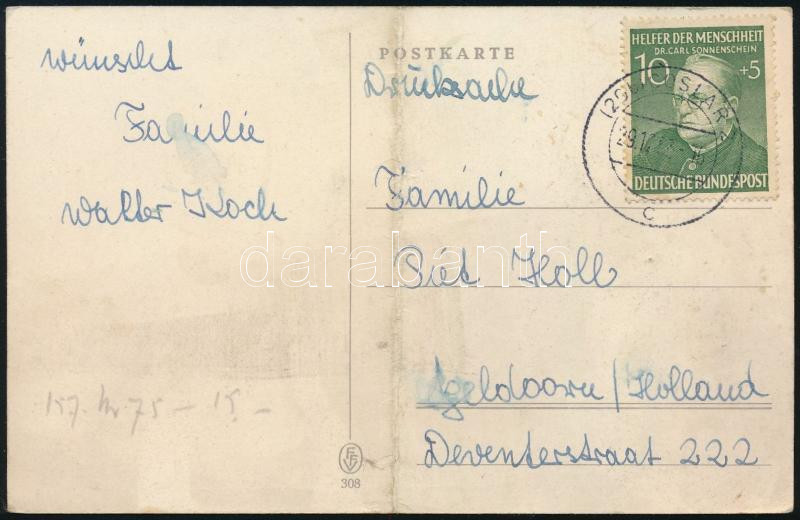 wünscht
Familie
Walter Koch
157. Nr 75 — 15,-
POSTKARTE
Drucksache
Familie
Piet Holl
Apeldoorn / Holland
Deventerstraat 222
HELFER DER MENSCHHEIT
DR. CARL SONNENSCHEIN
10 +5
DEUTSCHE BUNDESPOST
GOSLAR
c
308
darabanth